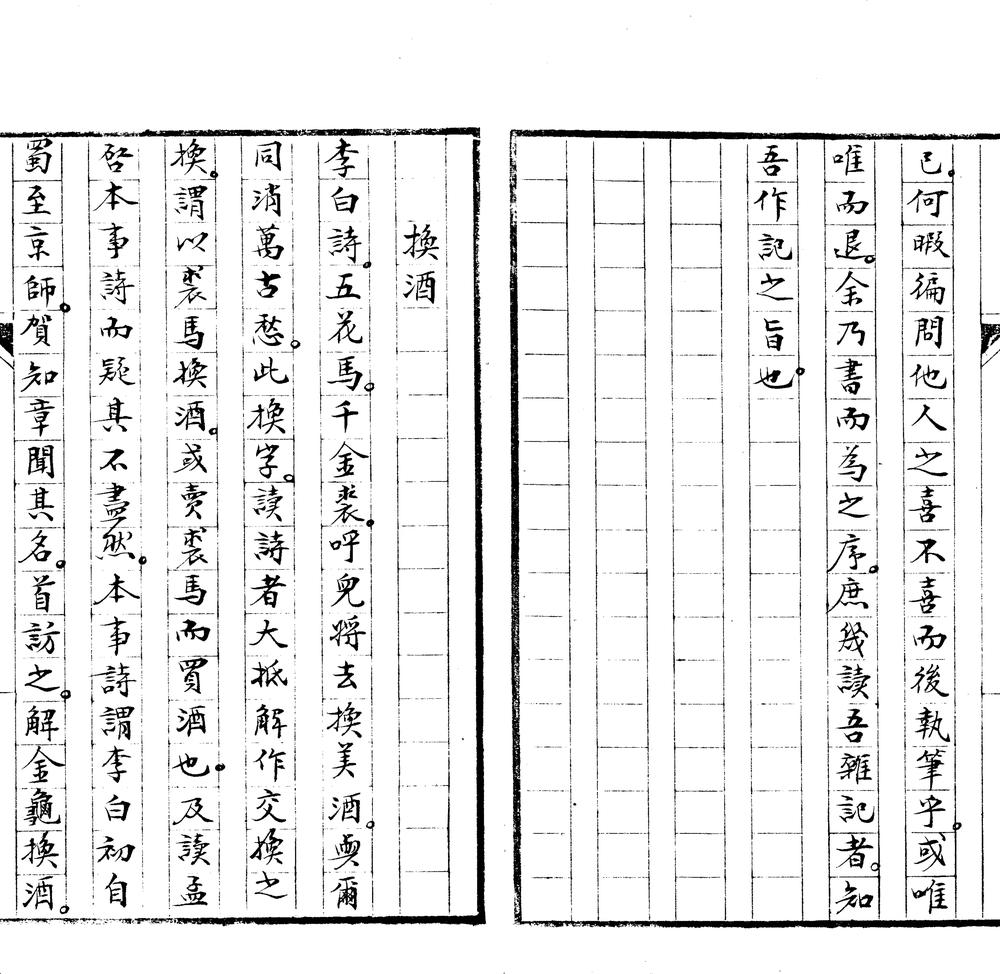 已。何暇徧問他人之喜不喜而後執筆乎。或唯
唯而退。余乃書而為之序。庶幾讀吾雜記者。知
吾作記之旨也。
換酒
李白詩。五花馬。千金裘。呼兒將去換美酒。與爾
同消萬古愁。此換字。讀詩者大抵解作交換之
換。謂以裘馬換酒。或賣裘馬而買酒也。及讀孟
啓本事詩而疑其不盡然。本事詩謂李白初自
蜀至京師。賀知章聞其名。首訪之。解金龜換酒。